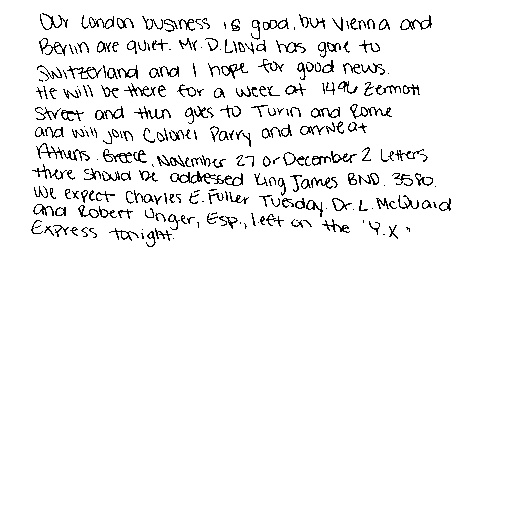 Our London business is good, but Vienna and
Berlin are quiet. Mr. D. Lloyd has gone to
Switzerland and I hope for good news.
He will be there for a week at 1496 Zermott
Street and then goes to Turin and Rome
and will join Colonel Parry and arrive at
Athens. Greece, November 27 or December 2 Letters
there should be addressed King James BND. 3580.
We expect Charles E. Fuller Tuesday. Dr. L. McQuaid
and Robert Unger, Esp., left on the "Y.X"
Express tonight.